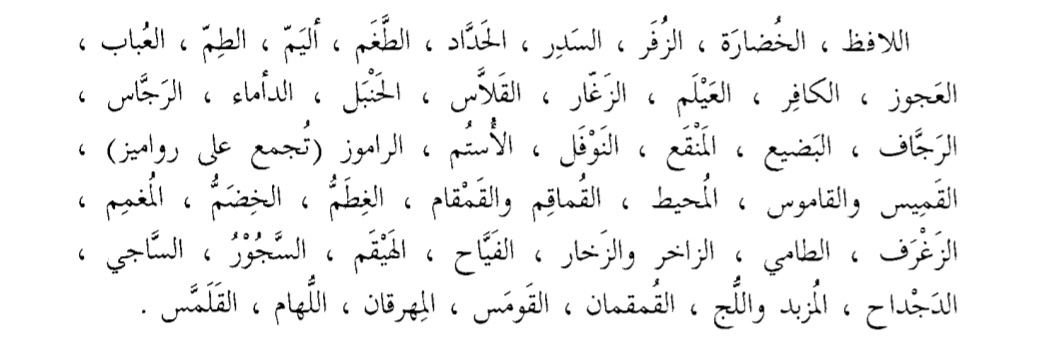 اللافظ ، الخُضارَة ، الزُفَر ، السَدِر ، الحَدَّاد ، الطَّغَم ، أليَمّ ، الطِمّ ، العُباب ،
العَجوز ، الكافِر ، العَيْلَم ، الزَغّار ، القَلاَّس ، الحَنْبَل ، الدأماء ، الرَجَّاس ،
الرَجَّاف ، البَضيع ، المَنْقَع ، النَوْفَل ، الأُستُم ، الراموز (تُجمع على رواميز) ،
القَمِيس والقاموس ، المُحيط ، القُماقِم والقَمْقام ، الغِطَمُّ ، الخِضَمُّ ، المُغمِم ،
الزَغْرَف ، الطامي ، الزاخر والزَخار ، الفَيَّاح ، الهَيْقَم ، السَّجُوْرُ ، السَّاجي ،
الدَجْداح ، المُزبد واللُّج ، القُمقمان ، القَومَس ، المِهرقان ، اللُّهام ، القَلَمَّس .